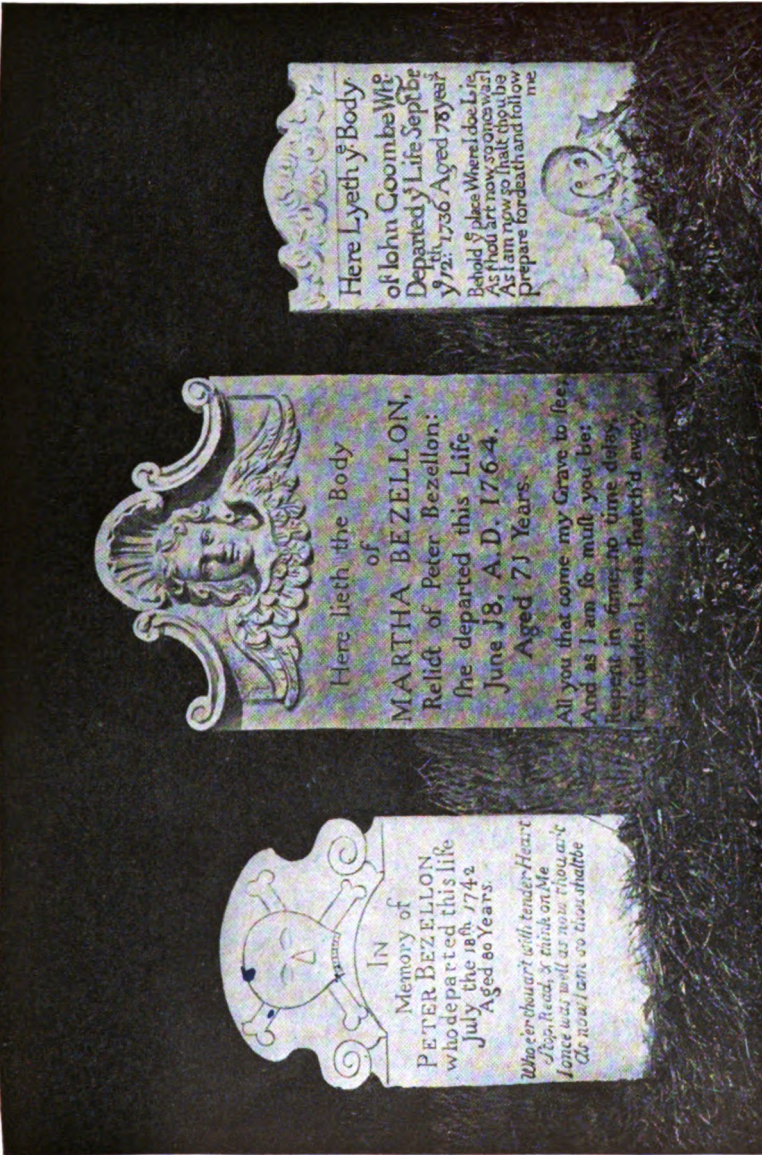 IN
Memory of
PETER BEZELLON
who departed this life
July the 18th 1742
Aged 80 Years.
Whoeer thou art with tender Heart
Stop, Read, & think on Me
I once was well as now thou art
As now I am so thou shalt be
Here lieth the Body
of
MARTHA BEZELLON,
Relict of Peter Bezellon:
ſhe departed this Life
June J8, A.D. 1764.
Aged 7J Years.
All you that come my Grave to ſee,
And as I am ſo muſt you be:
Repent in time, no time delay,
For ſudden I was ſnatch'd away.
Here Lyeth yͤ Body
of Iohn Coombe Who
Departed yͤ Life Septbe
yͤ 12th: 1736 Aged 78 years
Behold yͤ place Where I doe Lie
As thou art now so once was I
As I am now so ſhalt thou be
Prepare for death and follow
me